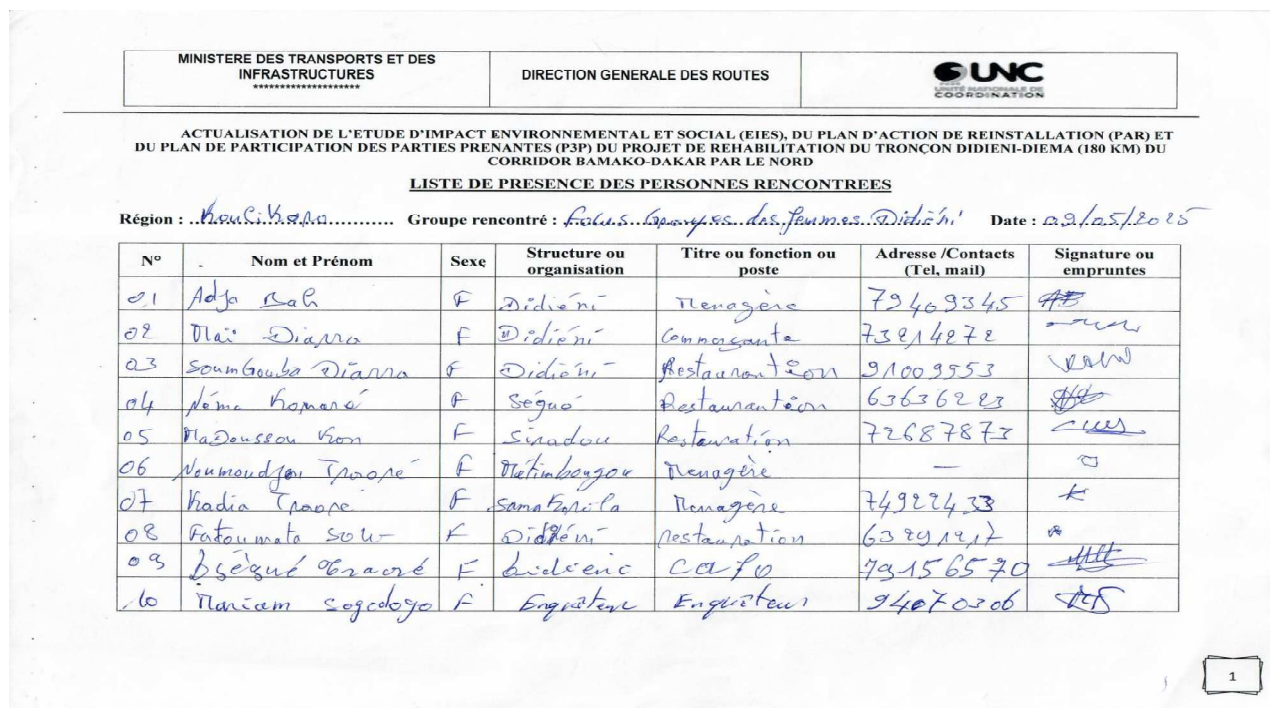 MINISTERE DES TRANSPORTS ET DES INFRASTRUCTURES
********************
DIRECTION GENERALE DES ROUTES
UNC
UNITÉ NATIONALE DE COORDINATION
ACTUALISATION DE L'ETUDE D'IMPACT ENVIRONNEMENTAL ET SOCIAL (EIES), DU PLAN D'ACTION DE REINSTALLATION (PAR) ET
DU PLAN DE PARTICIPATION DES PARTIES PRENANTES (P3P) DU PROJET DE REHABILITATION DU TRONÇON DIDIENI-DIEMA (180 KM) DU
CORRIDOR BAMAKO-DAKAR PAR LE NORD
LISTE DE PRESENCE DES PERSONNES RENCONTREES
Région : Koulikoro Groupe rencontré : Focus Groupes des femmes Didiéni Date : 09/05/2025
N° Nom et Prénom Sexe Structure ou organisation Titre ou fonction ou poste Adresse /Contacts (Tel, mail) Signature ou empruntes
01 Adja Bah F Didiéni Menagère 79409345
02 Maï Diarra F Didiéni Commerçante 73214272
03 Soumgouba Diarra F Didiéni Restauration 91009553
04 Néma Komaré F Ségué Restauration 63636223
05 Madoussou Kon F Siradou Restauration 72687873
06 Traoré F Menagère —
07 Kadia Traoré F Menagère 74922433
08 Fatoumata F Didiéni restauration 63291217
09 F cafo 79156570
10 Mariam Sogodogo F Enquêteur Enquêteur 94070306
1